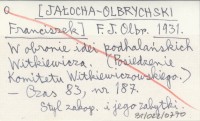 [JAŁOCHA-OLBRYCHSKI
Franciszek] F.J. Olbr. 1931.
W obronie idei podhalańskich
Witkiewicza. (Posiedzenie
Komitetu Witkiewiczowskiego.)
— Czas 83, nr 187.
Styl zakop. i jego zabytki.